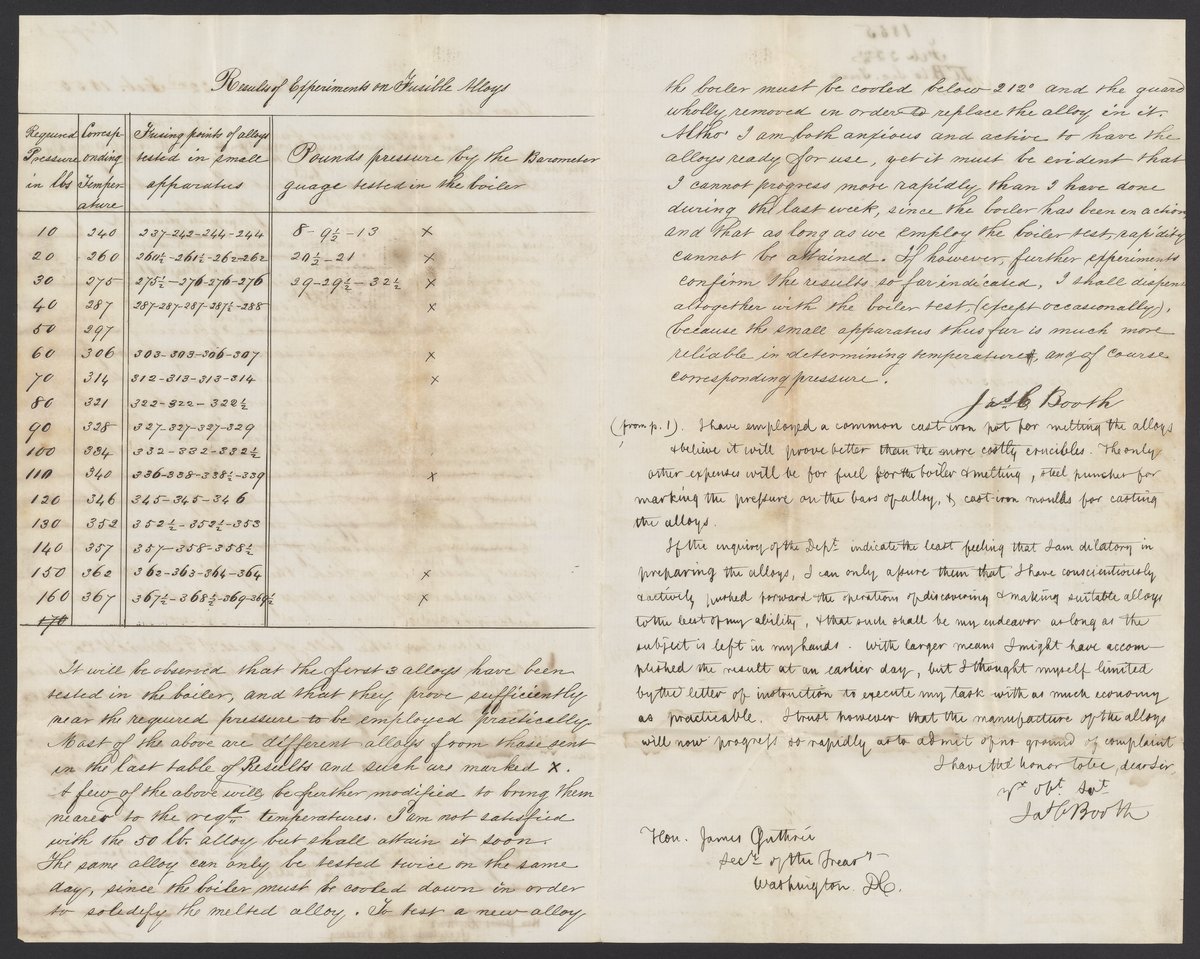 Results of Experiments on Fusible Alloys
Required Pressure in lbs | Corresponding Temperature | Fusing points of alloys tested in small apparatus | Pounds pressure by the Barometer guage tested in the boiler
10 240 237-242-244-244 8-9½-13 x
20 260 260½-261½-262-262 20½-21 x
30 275 275½-276-276-276 29-29½-32½ x
40 287 287-287-287-287½-288 x
50 297
60 306 303-303-306-307 x
70 314 312-313-313-314 x
80 321 322-322-322½
90 328 327-327-327-329
100 334 332-332-332½
110 340 336-338-338½-339 x
120 346 345-345-346
130 352 352½-352½-353
140 357 357-358-358½
150 362 362-363-364-364 x
160 367 367½-368½-369-369½ x
170
It will be observed that the first 3 alloys have been
tested in the boiler, and that they prove sufficiently
near the required pressure to be employed practically.
Most of the above are different alloys from those sent
in the last table of Results and such are marked x.
A few of the above will be further modified to bring them
nearer to the reqd temperatures. I am not satisfied
with the 50 lb. alloy but shall attain it soon.
The same alloy can only be tested twice on the same
day, since the boiler must be cooled down in order
to soledify the melted alloy. To test a new alloy
the boiler must be cooled below 212° and the guard
wholly removed in order to replace the alloy in it.
Altho' I am both anxious and active to have the
alloys ready for use, yet it must be evident that
I cannot progress more rapidly than I have done
during the last week, since the boiler has been in action
and that as long as we employ the boiler test, rapidity
cannot be attained. If however, further experiments
confirm the results so far indicated, I shall dispense
altogether with the boiler test, (except occasionally),
because the small apparatus thus far is much more
reliable in determining temperature, and of course
corresponding pressure.
Jas C Booth
(from p. 1). I have employed a common cast-iron pot for melting the alloys
& believe it will prove better than the more costly crucibles. The only
other expenses will be for fuel for the boiler & melting, steel puncher for
marking the pressure on the bars of alloy, & cast-iron moulds for casting
the alloys.
If the inquiry of the Dept. indicate the least feeling that I am dilatory in
preparing the alloys, I can only assure them that I have conscientiously
& actively pushed forward the operation of discovering & making suitable alloys
to the best of my ability, & that such shall be my endeavor as long as the
subject is left in my hands. With larger means I might have accom-
plished the result at an earlier day, but I thought myself limited
by the letter of instruction to execute my task with as much economy
as practicable. I trust however that the manufacture of the alloys
will now progress so rapidly as to admit of no ground of complaint
I have the honor to be, dear Sir,
Yr Obt Svt
Jas C Booth
Hon. James Guthrie
Secy of the Treasy
Washington DC.